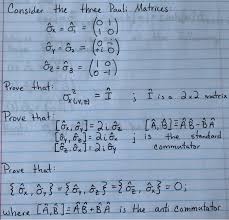 Consider the three Pauli Matrices:
σ̂x = σ̂1 = (0 1
1 0)
σ̂y = σ̂2 = (0 -i
+i 0)
σ̂z = σ̂3 = (1 0
0 -1)
Prove that:
σ̂²x(,y,z) = Î ; Î is a 2x2 matrix
Prove that:
[σ̂x, σ̂y] = 2i σ̂z [Â, B̂] = ÂB̂ - B̂Â
[σ̂y, σ̂z] = 2i σ̂x ; is the standard
[σ̂z, σ̂x] = 2i σ̂y commutator
Prove that:
{σ̂x, σ̂y} = {σ̂y, σ̂z} = {σ̂z, σ̂x} = 0;
where {Â, B̂} = ÂB̂ + B̂Â is the anti commutator